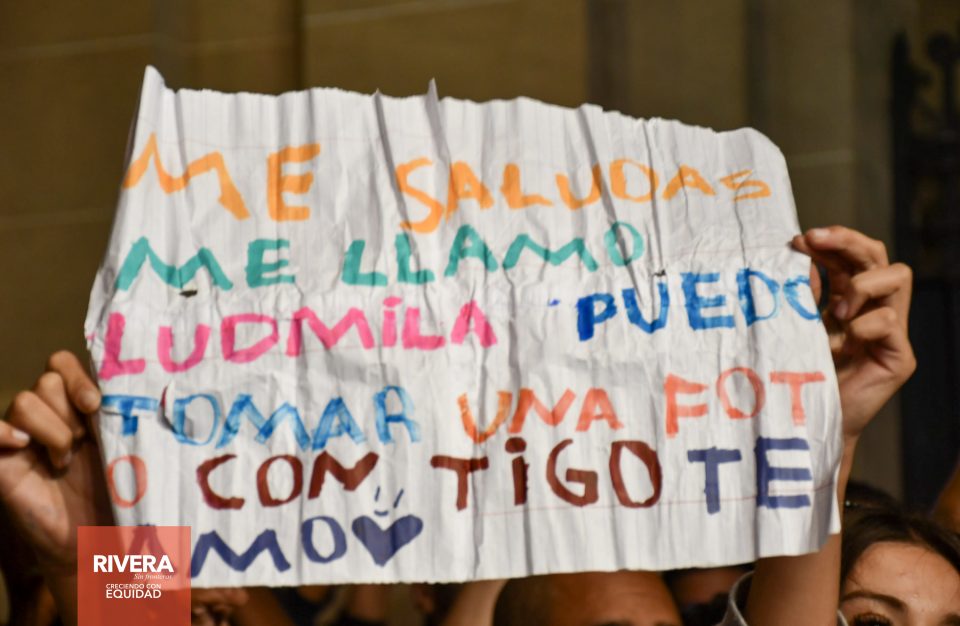 ME SALUDAS
ME LLAMO
LUDMILA PUEDO
TOMAR UNA FOT
O CON TIGO TE
AMO
RIVERA
Sin fronteras
CRECIENDO CON
EQUIDAD